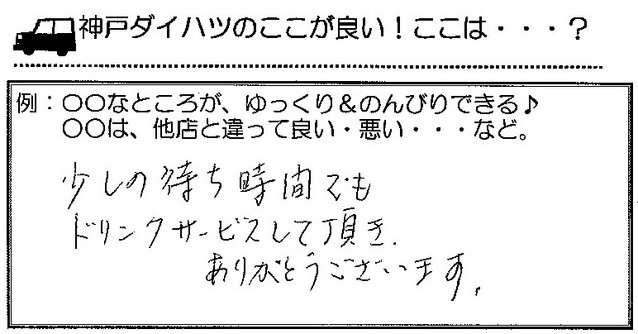 神戸ダイハツのここが良い！ここは・・・？
例：〇〇なところが、ゆっくり＆のんびりできる♪
〇〇は、他店と違って良い・悪い・・・など。
少しの待ち時間でも
ドリンクサービスして頂き、
ありがとうございます。